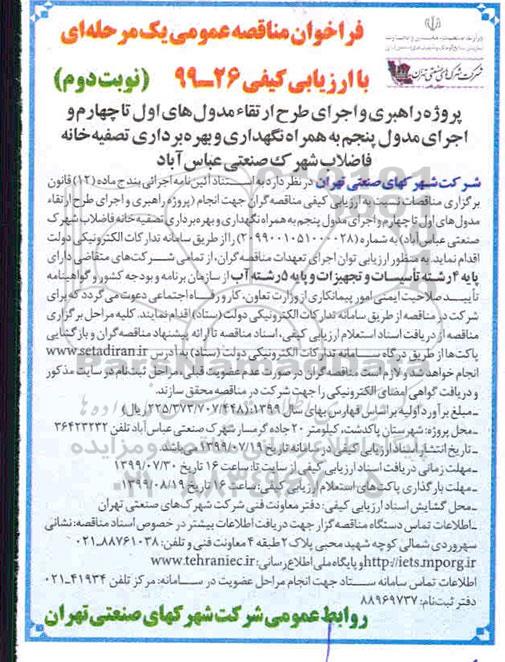 فراخوان مناقصه عمومی یک مرحله‌ای
با ارزیابی کیفی ۲۶-۹۹ (نوبت دوم)
شرکت شهرکهای صنعتی تهران
پروژه راهبری و اجرای طرح ارتقاء مدول‌های اول تا چهارم و
اجرای مدول پنجم به همراه نگهداری و بهره‌برداری تصفیه‌خانه
فاضلاب شهرک صنعتی عباس‌آباد
شرکت شهرکهای صنعتی تهران در نظر دارد به استناد آئین‌نامه اجرائی بند ج ماده (۱۲) قانون
برگزاری مناقصات نسبت به ارزیابی کیفی مناقصه‌گران جهت انجام (پروژه راهبری و اجرای طرح ارتقاء
مدول‌های اول تا چهارم و اجرای مدول پنجم به همراه نگهداری و بهره‌برداری تصفیه‌خانه فاضلاب شهرک
صنعتی عباس‌آباد) به شماره (۲۰۹۹۰۰۱۰۵۱۰۰۰۰۲۸) را از طریق سامانه تدارکات الکترونیکی دولت
اقدام نماید. به منظور ارزیابی توان اجرای تعهدات مناقصه‌گران، از تمامی شرکت‌های متقاضی دارای
پایه ۴ رشته تأسیسات و تجهیزات و پایه ۵ رشته آب از سازمان برنامه و بودجه کشور و گواهینامه
تأیید صلاحیت ایمنی امور پیمانکاری از وزارت تعاون، کار و رفاه اجتماعی دعوت می‌گردد که برای
شرکت در مناقصه از طریق سامانه تدارکات الکترونیکی دولت (ستاد) اقدام نمایند. کلیه مراحل برگزاری
مناقصه از دریافت اسناد استعلام ارزیابی کیفی، اسناد مناقصه تا ارائه پیشنهاد مناقصه‌گران و بازگشایی
پاکت‌ها از طریق درگاه سامانه تدارکات الکترونیکی دولت (ستاد) به آدرس www.setadiran.ir
انجام خواهد شد و لازم است مناقصه‌گران در صورت عدم عضویت قبلی، مراحل ثبت‌نام در سایت مذکور
و دریافت گواهی امضای الکترونیکی را جهت شرکت در مناقصه محقق سازند.
- مبلغ برآورد اولیه بر اساس فهارس بهای سال ۱۳۹۹: (۲۳۵/۳۷۳/۷۰۷/۴۴۸ ریال)
- محل پروژه: شهرستان پاکدشت، کیلومتر ۲۰ جاده گرمسار شهرک صنعتی عباس‌آباد تلفن ۳۶۴۲۳۲۳۲
- تاریخ انتشار اسناد ارزیابی کیفی در سامانه تاریخ ۱۳۹۹/۰۷/۱۹ می‌باشد.
- مهلت زمانی دریافت اسناد ارزیابی کیفی از سایت تا: ساعت ۱۶ تاریخ ۱۳۹۹/۰۷/۳۰
- مهلت بارگذاری پاکت‌های استعلام ارزیابی کیفی: ساعت ۱۶ تاریخ ۱۳۹۹/۰۸/۱۹
- محل گشایش اسناد ارزیابی کیفی: دفتر معاونت فنی شرکت شهرک‌های صنعتی تهران
- اطلاعات تماس دستگاه مناقصه‌گزار جهت دریافت اطلاعات بیشتر در خصوص اسناد مناقصه: نشانی
سهروردی شمالی کوچه شهید محبی پلاک ۲ طبقه ۴ معاونت فنی و تلفن: ۸۸۷۶۱۰۳۸-۰۲۱
http://iets.mporg.ir و پایگاه ملی اطلاع‌رسانی: www.tehraniec.ir
اطلاعات تماس سامانه ستاد جهت انجام مراحل عضویت در سامانه: مرکز تلفن ۴۱۹۳۴-۰۲۱
دفتر ثبت‌نام: ۸۸۹۶۹۷۳۷
روابط عمومی شرکت شهرکهای صنعتی تهران